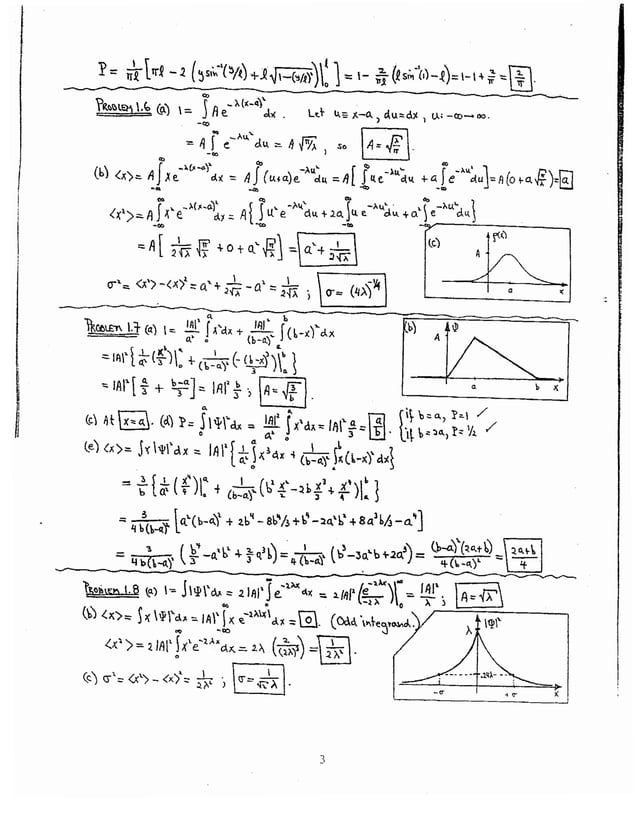 P = 1/πl [πl − 2 (y sin⁻¹(y/l) + l√(1−(y/l)²))|₀ˡ] = 1 − 2/πl (l sin⁻¹(1) − l) = 1 − 1 + 2/π = 2/π.
PROBLEM 1.6 (a) 1 = ∫_{-∞}^{∞} A e^{-λ(x-a)²} dx. Let u ≡ x−a, du = dx, u: −∞ → ∞.
= A ∫_{-∞}^{∞} e^{-λu²} du = A √(π/λ), so A = √(λ/π)
(b) <x> = A ∫_{-∞}^{∞} x e^{-λ(x-a)²} dx = A ∫_{-∞}^{∞} (u+a) e^{-λu²} du = A [∫_{-∞}^{∞} u e^{-λu²} du + a ∫_{-∞}^{∞} e^{-λu²} du] = A (0 + a √(π/λ)) = a
<x²> = A ∫_{-∞}^{∞} x² e^{-λ(x-a)²} dx = A {∫u² e^{-λu²} du + 2a ∫u e^{-λu²} du + a² ∫e^{-λu²} du}
= A [1/2√λ √(π/λ) + 0 + a² √(π/λ)] = a² + 1/2√λ
σ² = <x²> − <x>² = a² + 1/2√λ − a² = 1/2√λ ; σ = (4λ)^{-1/4}
(c)
ρ(x)
A
a
x
PROBLEM 1.7 (a) 1 = |A|²/a² ∫₀ᵃ x² dx + |A|²/(b−a)² ∫ₐᵇ (b−x)² dx
= |A|² {1/a² (x³/3)|₀ᵃ + 1/(b−a)² (−(b−x)³/3)|ₐᵇ}
= |A|² [a/3 + (b−a)/3] = |A|² b/3 ; A = √(3/b)
(b)
Ψ
A
a
b
x
(c) At x = a. (d) P = ∫₀ᵃ |Ψ|² dx = |A|²/a² ∫₀ᵃ x² dx = |A|² a/3 = a/b. {if b = a, P = 1 ✓
{if b = 2a, P = 1/2 ✓
(e) <x> = ∫x|Ψ|² dx = |A|² {1/a² ∫₀ᵃ x³ dx + 1/(b−a)² ∫ₐᵇ x(b−x)² dx}
= 3/b {1/a² (x⁴/4)|₀ᵃ + 1/(b−a)² (b² x²/2 − 2b x³/3 + x⁴/4)|ₐᵇ}
= 3/4b(b−a)² [a²(b−a)² + 2b⁴ − 8b⁴/3 + b⁴ − 2a²b² + 8a³b/3 − a⁴]
= 3/4b(b−a)² (b⁴/3 − a²b² + 2/3 a³b) = 1/4(b−a)² (b³ − 3a²b + 2a³) = (b−a)²(2a+b)/4(b−a)² = (2a+b)/4
PROBLEM 1.8 (a) 1 = ∫|Ψ|² dx = 2|A|² ∫₀^∞ e^{-2λx} dx = 2|A|² (e^{-2λx}/−2λ)|₀^∞ = |A|²/λ ; A = √λ
(b) <x> = ∫x|Ψ|² dx = |A|² ∫_{-∞}^{∞} x e^{-2λ|x|} dx = 0. (Odd integrand.)
<x²> = 2|A|² ∫₀^∞ x² e^{-2λx} dx = 2λ (2/(2λ)³) = 1/2λ².
(c) σ² = <x²> − <x>² = 1/2λ² ; σ = 1/√2 λ.
λ
|Ψ|²
.24λ
−σ
+σ
x
3